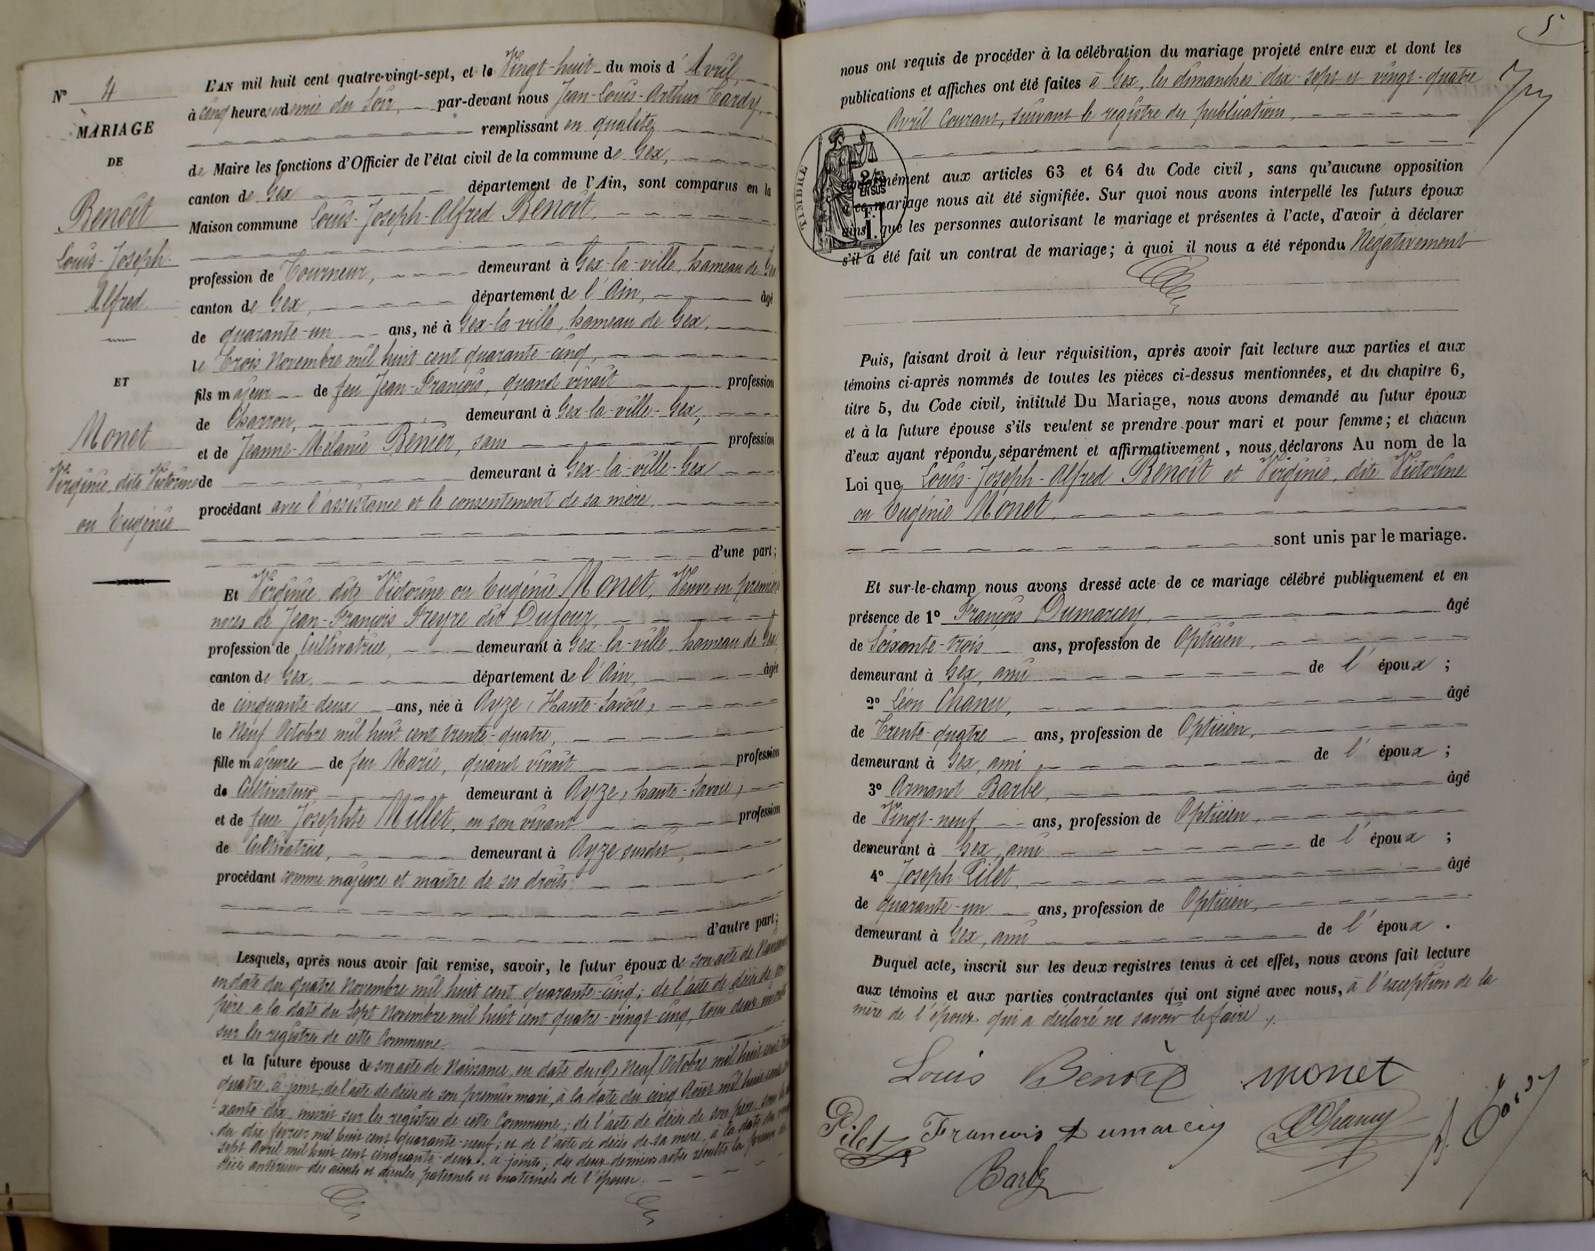 N° 4
MARIAGE
DE
Benoît
Louis-Joseph
Alfred
ET
Monet
Virginie, dite Victorine
ou Eugénie
L'AN mil huit cent quatre-vingt-sept, et le Vingt-huit du mois d'Avril
à cinq heures du Soir, par-devant nous Jean-Louis-Arthur
remplissant en qualité
de Maire les fonctions d'Officier de l'état civil de la commune de Gex,
canton de Gex département de l'Ain, sont comparus en la
Maison commune Louis-Joseph-Alfred Benoît,
profession de Tourneur, demeurant à Gex-la-ville, hameau de Gex
canton de Gex, département de l'Ain, âgé
de quarante-un ans, né à Gex-la-ville, hameau de Gex,
le Trois Novembre mil huit cent quarante-cinq,
fils majeur de feu Jean-François, quand vivait profession
de Charron, demeurant à Gex-la-ville-Gex,
et de Jeanne-Mélanie sans profession
de demeurant à Gex-la-ville-Gex
procédant avec l'assistance et le consentement de sa mère.
d'une part;
Et Virginie dite Victorine ou Eugénie Monet, Veuve en premières
noces de Jean-François dit Dufour,
profession de Cultivatrice, demeurant à Gex-la-ville hameau de Gex,
canton de Gex, département de l'Ain, âgée
de cinquante deux ans, née à Ayze, (Haute-Savoie),
le Neuf Octobre mil huit cent trente-quatre,
fille majeure de feu Marie, quand vivait profession
de Cultivateur demeurant à Ayze, haute-Savoie,
et de feue Josephte Millet, en son vivant profession
de Cultivatrice, demeurant à Ayze susdit,
procédant comme majeure et maître de ses droits.
d'autre part;
Lesquels, après nous avoir fait remise, savoir, le futur époux de son acte de Naissance
en date du quatre Novembre mil huit cent quarante-cinq; de l'acte de décès de son
père à la date du Sept Novembre mil huit cent quatre-vingt-cinq, tous deux inscrits
sur les registres de cette Commune.
et la future épouse de son acte de Naissance, en date du 9 Neuf Octobre mil huit cent trente
quatre, ci-joint, de l'acte de décès de son premier mari, à la date du cinq Août mil huit cent
xante dix, inscrit sur les registres de cette Commune; de l'acte de décès de son père
du dix février mil huit cent quarante-neuf; et de l'acte de décès de sa mère, à la date du
sept Avril mil huit cent cinquante-deux, ci joints; des deux derniers actes résulte la preuve du
décès antérieur des aïeuls et aïeules paternels et maternels de l'épouse.
5
nous ont requis de procéder à la célébration du mariage projeté entre eux et dont les
publications et affiches ont été faites à Gex, les dimanches dix-sept et vingt-quatre
Avril Courant, suivant le registre des publications,
TIMBRE
conformément aux articles 63 et 64 du Code civil, sans qu'aucune opposition
à ce mariage nous ait été signifiée. Sur quoi nous avons interpellé les futurs époux
ainsi que les personnes autorisant le mariage et présentes à l'acte, d'avoir à déclarer
s'il a été fait un contrat de mariage; à quoi il nous a été répondu Négativement
Puis, faisant droit à leur réquisition, après avoir fait lecture aux parties et aux
témoins ci-après nommés de toutes les pièces ci-dessus mentionnées, et du chapitre 6,
titre 5, du Code civil, intitulé Du Mariage, nous avons demandé au futur époux
et à la future épouse s'ils veulent se prendre pour mari et pour femme; et chacun
d'eux ayant répondu séparément et affirmativement, nous déclarons Au nom de la
Loi que Louis-Joseph-Alfred Benoît et Virginie, dite Victorine
ou Eugénie Monet,
sont unis par le mariage.
Et sur-le-champ nous avons dressé acte de ce mariage célébré publiquement et en
présence de 1° François Dumarcey, âgé
de Soixante-trois ans, profession de Opticien,
demeurant à Gex, ami de l'époux;
2° Léon Chanu, âgé
de Trente-quatre ans, profession de Opticien,
demeurant à Gex, ami de l'époux;
3° Armand Barbe, âgé
de Vingt-neuf ans, profession de Opticien,
demeurant à Gex, ami de l'époux;
4° Joseph Pilet, âgé
de quarante-un ans, profession de Opticien,
demeurant à Gex, ami de l'époux.
Duquel acte, inscrit sur les deux registres tenus à cet effet, nous avons fait lecture
aux témoins et aux parties contractantes qui ont signé avec nous, à l'exception de la
mère de l'époux qui a déclaré ne savoir le faire.
Louis Benoît monet
Pilet François Dumarcey
Barbe